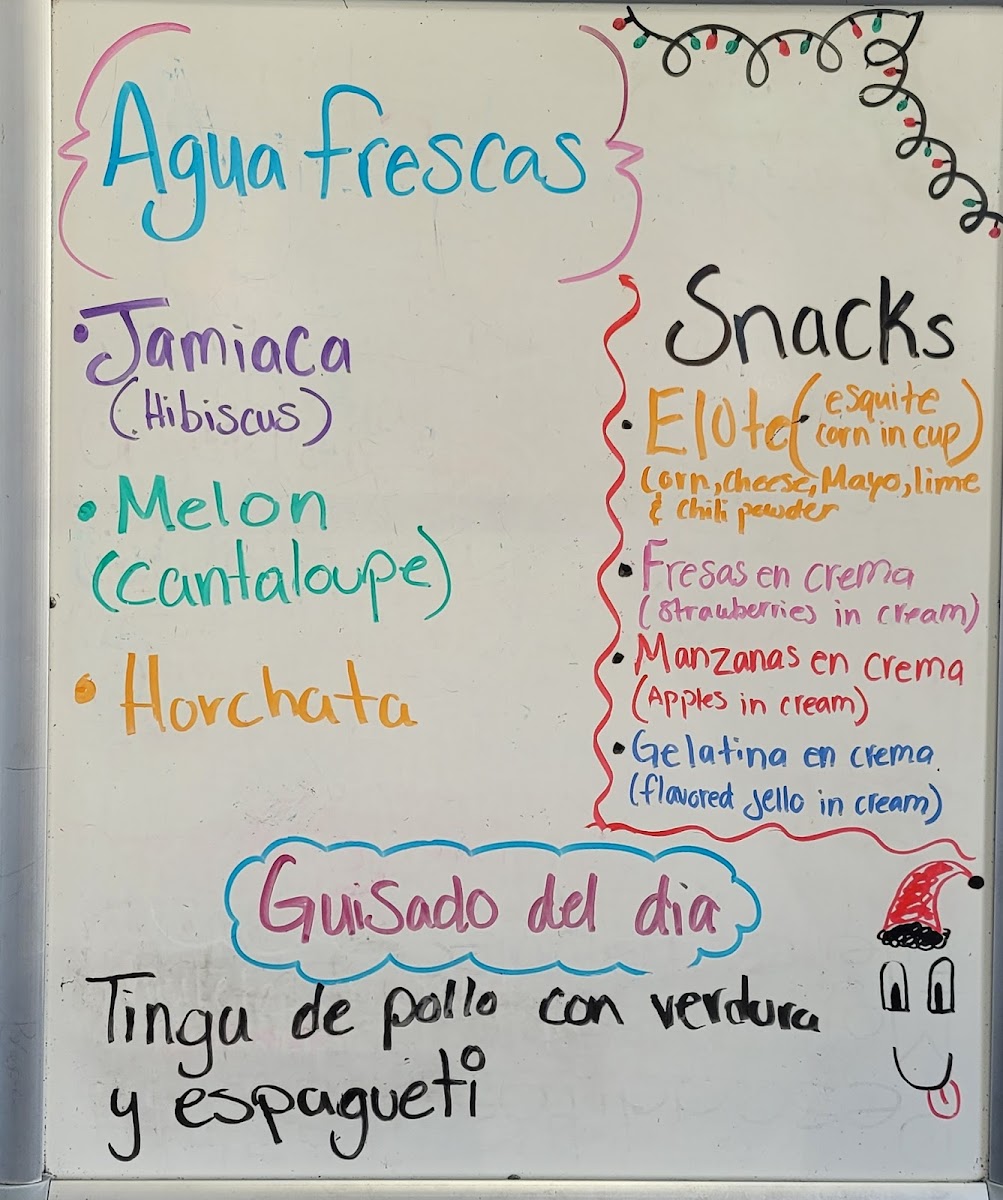 Agua frescas
• Jamiaca
(Hibiscus)
• Melon
(Cantaloupe)
• Horchata
Snacks
• Elote (esquite
corn in cup)
Corn, cheese, Mayo, lime
& chili powder
• Fresas en crema
(strawberries in cream)
• Manzanas en crema
(Apples in cream)
• Gelatina en crema
(flavored jello in cream)
Guisado del dia
Tinga de pollo con verdura
y espagueti